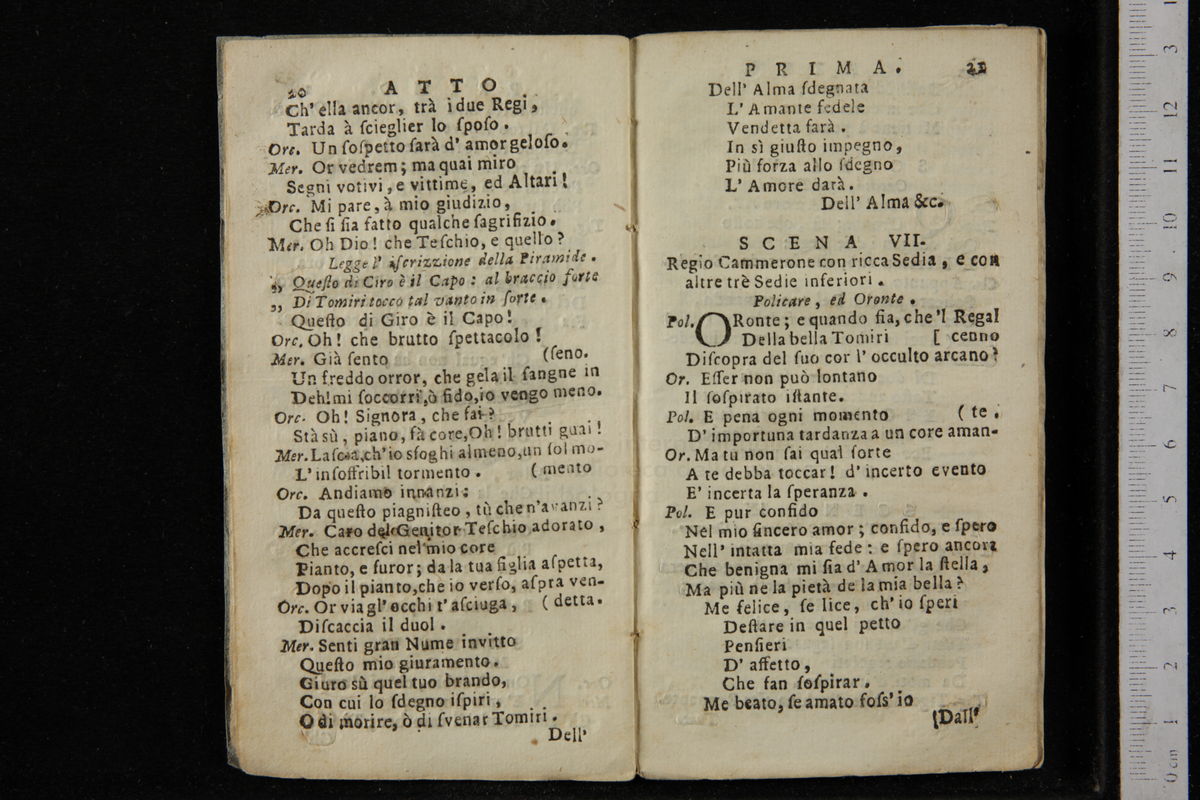 20 ATTO
Ch' ella ancor, trà i due Regi,
Tarda à ſcieglier lo ſpoſo.
Orc. Un ſoſpetto ſarà d' amor geloſo.
Mer. Or vedrem; ma quai miro
Segni votivi, e vittime, ed Altari!
Orc. Mi pare, à mio giudizio,
Che ſi ſia fatto qualche ſagrifizio.
Mer. Oh Dio! che Teſchio, e quello?
Legge l' iſcrizzione della Piramide.
,, Queſto di Ciro è il Capo: al braccio forte
,, Di Tomiri tocco tal vanto in ſorte.
Queſto di Giro è il Capo!
Orc. Oh! che brutto ſpettacolo!
Mer. Già ſento (ſeno.
Un freddo orror, che gela il ſangne in
Deh! mi ſoccorri, ò fido, io vengo meno.
Orc. Oh! Signora, che fai?
Stà sù, piano, fà core, Oh! brutti guai!
Mer. Laſcia, ch' io sfoghi almeno, un ſol mo-
L' inſoffribil tormento. (mento
Orc. Andiamo innanzi:
Da queſto piagniſteo, tù che n'avanzi?
Mer. Caro del Genitor Teſchio adorato,
Che accreſci nel mio core
Pianto, e furor; da la tua figlia aſpetta,
Dopo il pianto, che io verſo, aſpra ven-
Orc. Or via gl' occhi t' aſciuga, (detta.
Diſcaccia il duol.
Mer. Senti gran Nume invitto
Queſto mio giuramento.
Giuro sù quel tuo brando,
Con cui lo ſdegno iſpiri,
O di morire, ò di ſvenar Tomiri.
Dell'
PRIMA. 21
Dell' Alma ſdegnata
L' Amante fedele
Vendetta farà.
In sì giuſto impegno,
Più forza allo ſdegno
L' Amore darà.
Dell' Alma &c.
SCENA VII.
Regio Cammerone con ricca Sedia, e con
altre trè Sedie inferiori.
Policare, ed Oronte.
Pol. ORonte; e quando fia, che 'l Regal
Della bella Tomiri [ cenno
Diſcopra del ſuo cor l' occulto arcano?
Or. Eſſer non può lontano
Il ſoſpirato iſtante.
Pol. E pena ogni momento (te.
D' importuna tardanza a un core aman-
Or. Ma tu non ſai qual ſorte
A te debba toccar! d' incerto evento
E' incerta la ſperanza.
Pol. E pur confido
Nel mio ſincero amor; confido, e ſpero
Nell' intatta mia fede: e ſpero ancora
Che benigna mi ſia d' Amor la ſtella,
Ma più ne la pietà de la mia bella?
Me felice, ſe lice, ch' io ſperi
Deſtare in quel petto
Penſieri
D' affetto,
Che fan ſoſpirar.
Me beato, ſe amato foſs' io
(Dall'